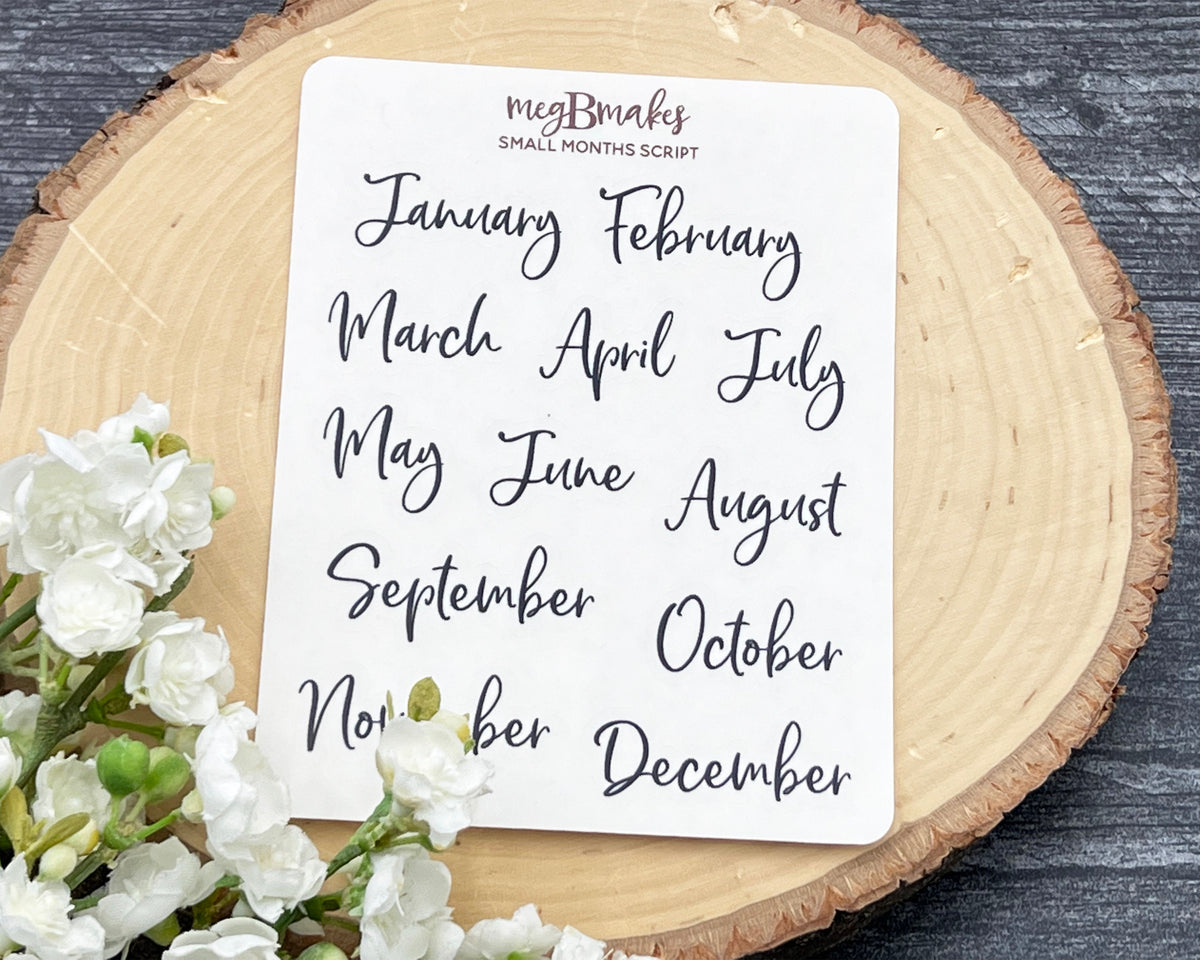 megBmakes
SMALL MONTHS SCRIPT
January February
March April July
May June August
September October
December